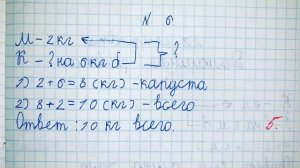 N 6
М – 2 кг
К – ? на 6 кг б ?
1) 2 + 6 = 8 (кг) – капуста
2) 8 + 2 = 10 (кг) – всего
Ответ: 10 кг всего.
5.